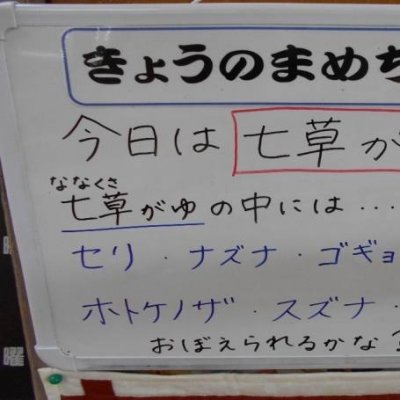 きょうのまめち
今日は 七草が
ななくさ
七草がゆの中には・・・
セリ・ナズナ・ゴギョ
ホトケノザ・スズナ・
おぼえられるかな
曜